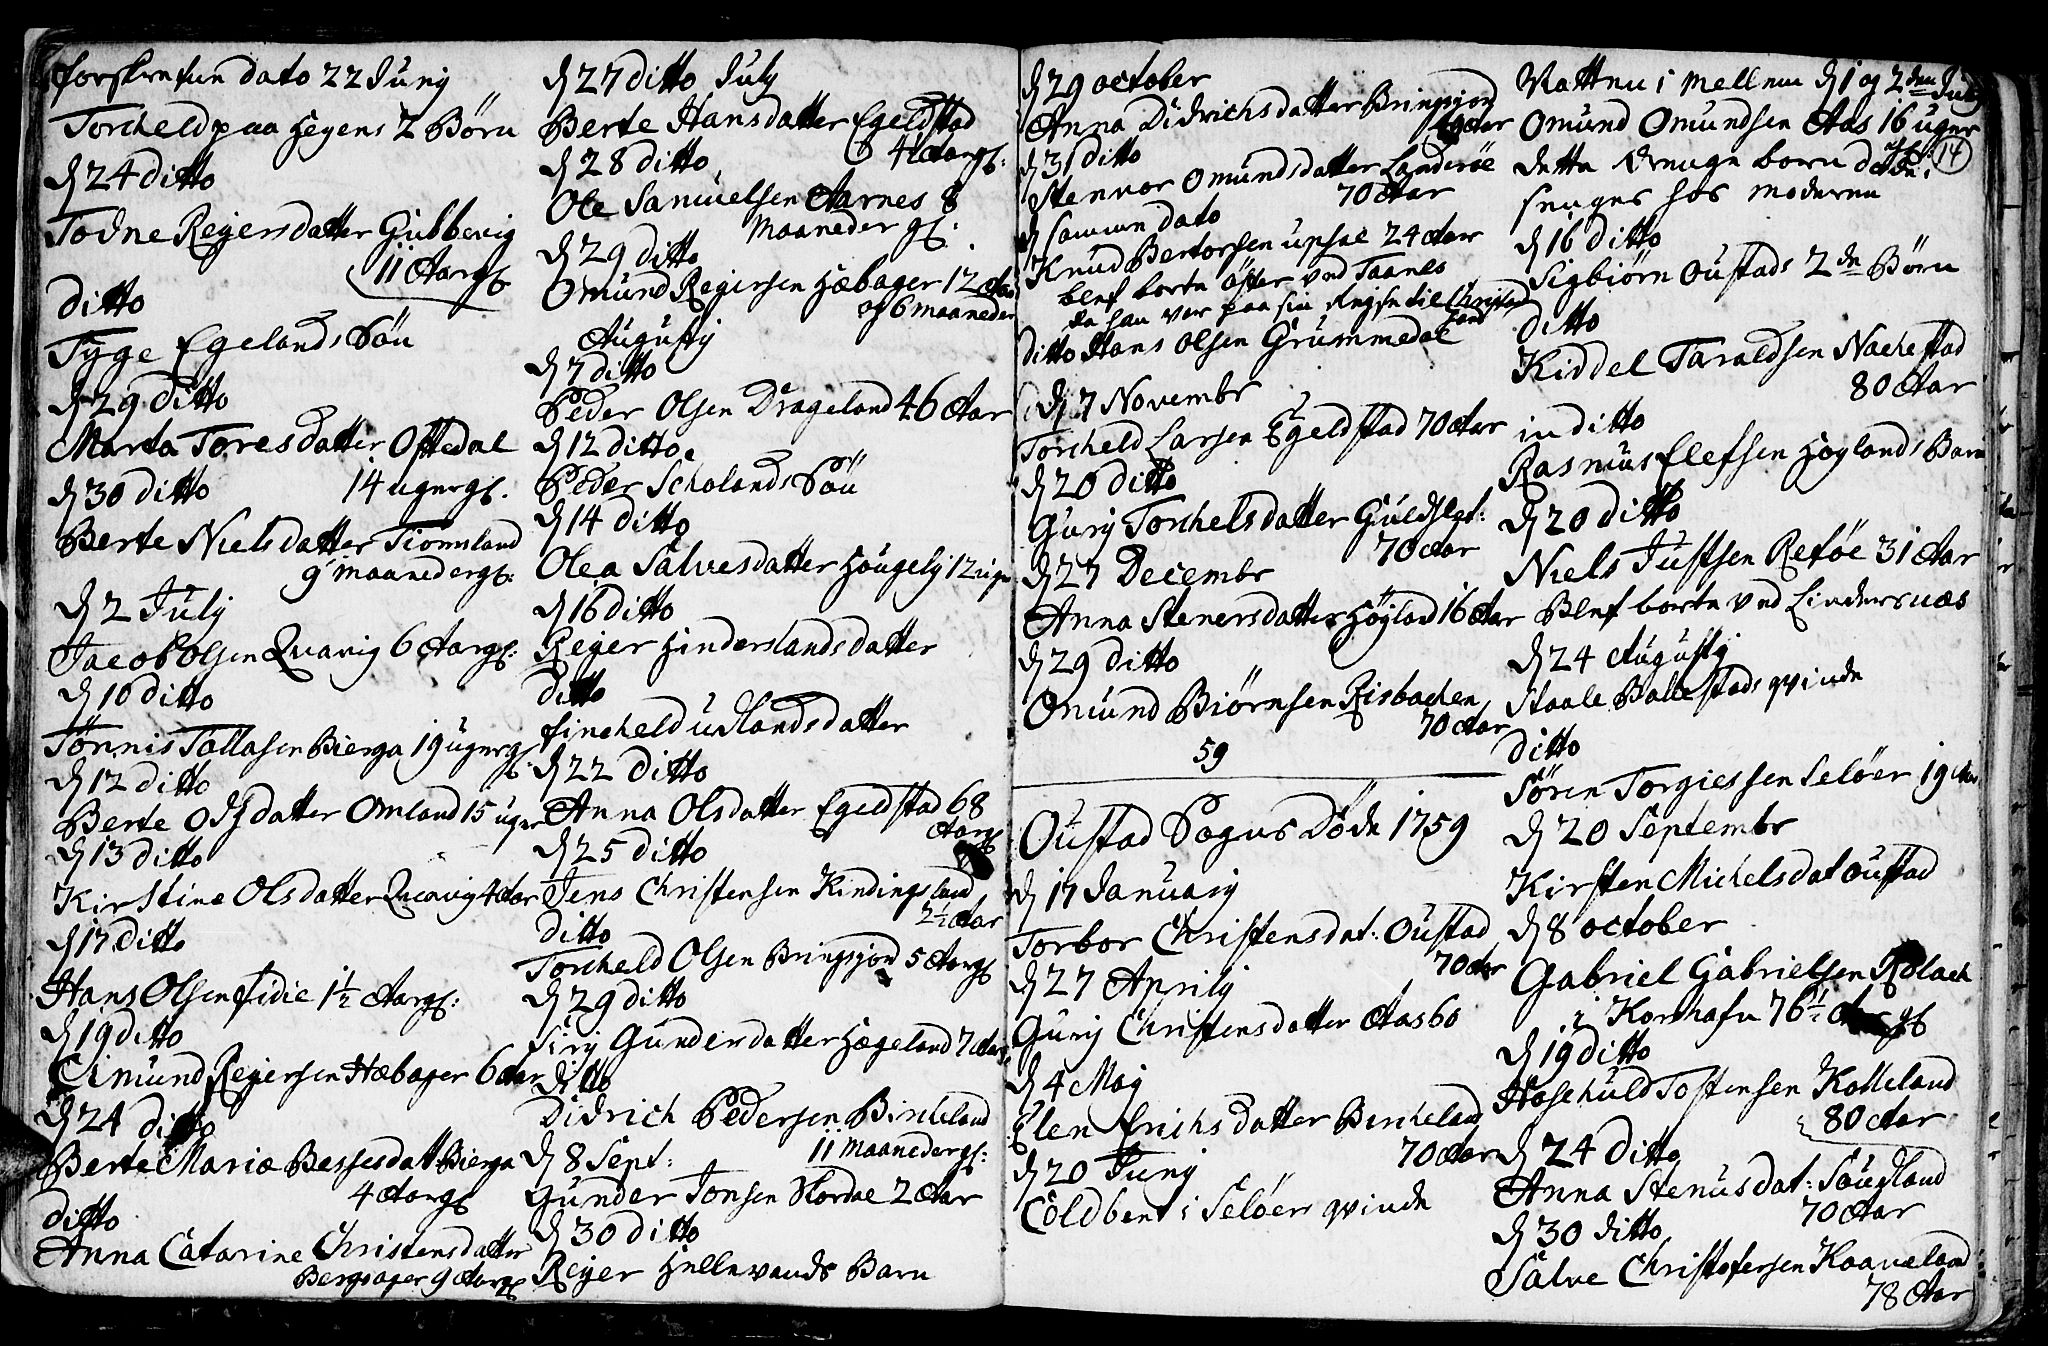 forskrefne dato 22 Junij
Torcheld paa Hegens 2 Børn
d 24 ditto
Todne Reiersdatter Gubbevig
11 Aar gl
ditto
Tyge Egelands Søn
d 29 ditto
Marta Toresdatter Oftedal
14 uger gl.
d 30 ditto
Berte Nielsdatter Tiomland
9 maaneder gl:
d 2 Julij
Jacob Olsen Qvavig 6 Aar gl:
d 10 ditto
Tønnis Tallasen Bierga 19 uger gl
d 12 ditto
Berte datter Omland 15 uger
d 13 ditto
Kirstine Olsdatter Qvavig 4 Aar
d 17 ditto
Hans Olsen fidie 1½ Aar gl:
d 19 ditto
Omund Reiersen Hæbager 6 Aar
d 24 ditto
Berte Maria Bessesdatt Bierga
4 Aar gl
ditto
Anna Catarine Christensdatter
Bergsager 9 Aar gl
d 27 ditto July
Berte Hansdatter Egeldstad
4 Aar gl:
d 28 ditto
Ole Samuelsen Aarnes 8
Maaneder gl.
d 29 ditto
Omund Reiersen Hæbager 12 Aar
og 6 maaneder
Augustij
d 7 ditto
Peder Olsen Drageland 46 Aar
d 12 ditto
Peder Scholands Søn
d 14 ditto
Olea Salvesdatter Hougelij 12 uger
d 16 ditto
Reier Hinderslandsdatter
ditto
fincheld udlandsdatter
d 22 ditto
Anna Olsdatter Egeldstad 68
Aar gl
d 25 ditto
Jens Christensen Kindingsland
2½ Aar
ditto
Torcheld Olsen Bringsjord 5 Aar gl
d 29 ditto
Sirij Gundersdatter Hægeland 7 Aar
ditto
Didrich Pedersen Bircheland
11 Maaneder gl:
d 8 Sept:
Gunder Jonsen Hordal 2 Aar
d 30 ditto
Reier Hellevands Barn
d 29 october
Anna Didrichsdatter Bringsjord
Aar
d 31 ditto
Stenvor Omundsdatter Landerøe
70 Aar
d samme dato
Knud Bertorsen upsal 24 Aar
blef borte öster ved Taanes
da han var paa sin Reise til Christian
sand
ditto Hans Olsen Grummedal
d 7 Novembr
Torcheld Larsen Egeldstad 70 Aar
d 20 ditto
Gurij Torchelsdatter Guldslet:
70 Aar
d 27 Decembr
Anna Stenersdatter Høyland 16 Aar
d 29 ditto
Omund Biørnsen Risbachen
70 Aar
59
Oustad Sogns Døde 1759
d 17 Januarij
Torbor Christensdat: Oustad
70 Aar
d 27 Aprilij
Gurij Christensdatter Aas 60
d 4 Maij
Elen Erichsdatter Bircheland
70 Aar
d 20 Junij
Coldbent i Seløer qvinde
Natten i mellem d 1 og 2den July
Omund Omundsen Aas 16 uger
14
dette Drenge barn døde i
senger hos moderen
d 16 ditto
Sigbiørn Oustads 2de Børn
ditto
Kiddel Taraldsen Nachestad
80 Aar
in ditto
Rasmus Elefsen Høylands Barn
d 20 ditto
Niels Justsen Retøe 31 Aar
Blef borte ved Lindersnæs
d 24 Augustij
Staale Ballestads qvinde
ditto
Sören Torgiessen Seløer 19 Aar
d 20 Septembr
Kirsten Michelsdat Oustad
d 8 october
Gabriel Gabrielsen
i Korshafn 76½ gl
d 19 ditto
Haschuld Tostensen Kolleland
80 Aar
d 24 ditto
Anna Stenersdat: Sougland
70 Aar
d 30 ditto
Salve Christofersen Kaaveland
78 Aar